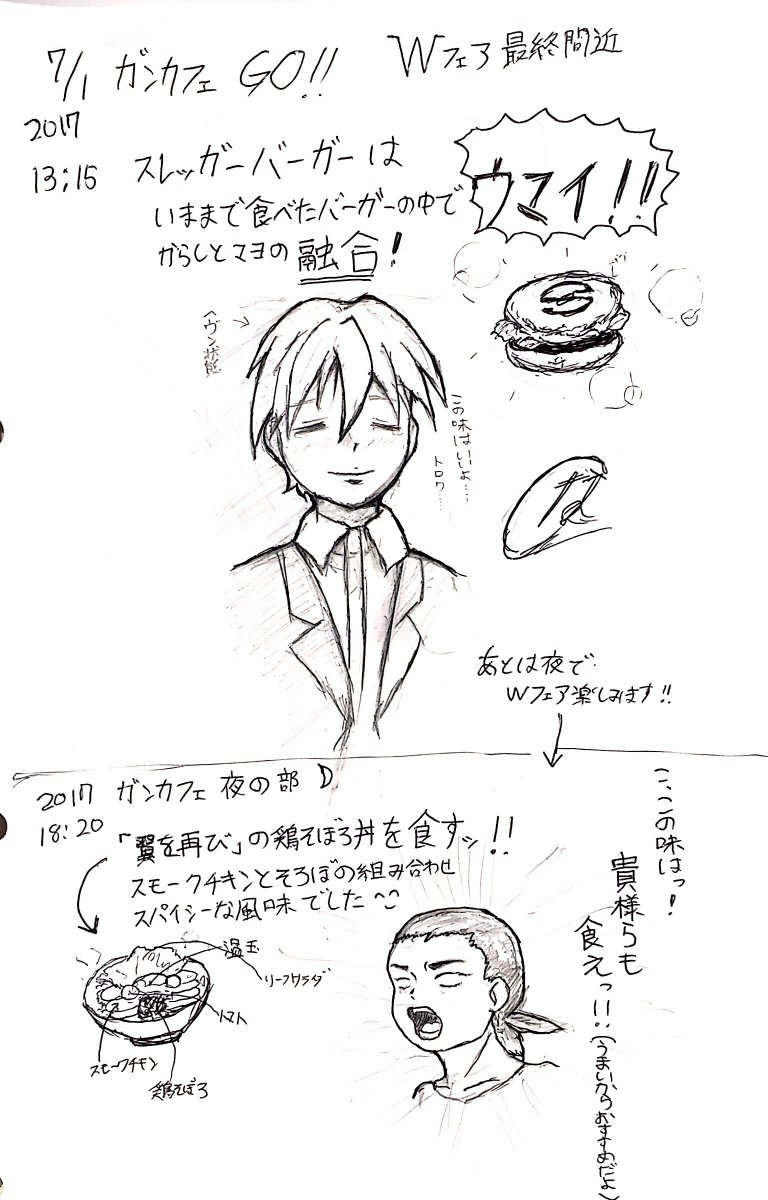 7/1 ガンカフェ GO!!
Wフェア最終間近
2017
13:15
スレッガーバーガーは
いままで食べたバーガーの中で
からしとマヨの融合!
ウマイ!!
ヘヴン状態
この味はいいよ……
トロワ…
S
あとは夜で
Wフェア楽しみます!!
2017 ガンカフェ 夜の部
18:20
「翼を再び」の鶏そぼろ丼を食すッ!!
スモークチキンとそろぼの組み合わせ
スパイシーな風味でした
温玉
リーフサラダ
トマト
スモークチキン
鶏そぼろ
こ、この味はっ!
貴様らも
食えっ!!
(うまいからおすすめだよ)